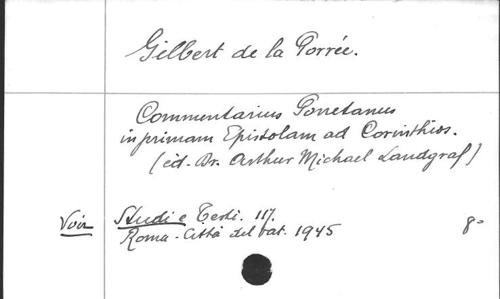 Gilbert de la Porrée.
Commentarius Porretanus
in primam Epistolam ad Corinthios.
(éd. Dr. Arthur Michael Landgraf)
Voir Studi e Testi. 117.
Roma - Città del Vat. 1945 8°